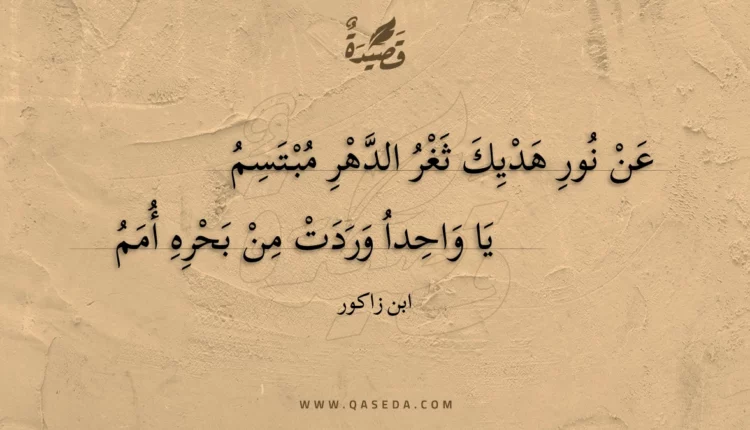 قَصِيدَةٌ
عَنْ نُورِ هَدْيِكَ ثَغْرُ الدَّهْرِ مُبْتَسِمُ
يَا وَاحِداُ وَرَدَتْ مِنْ بَحْرِهِ أُمَمُ
ابن زاكور
WWW.QASEDA.COM